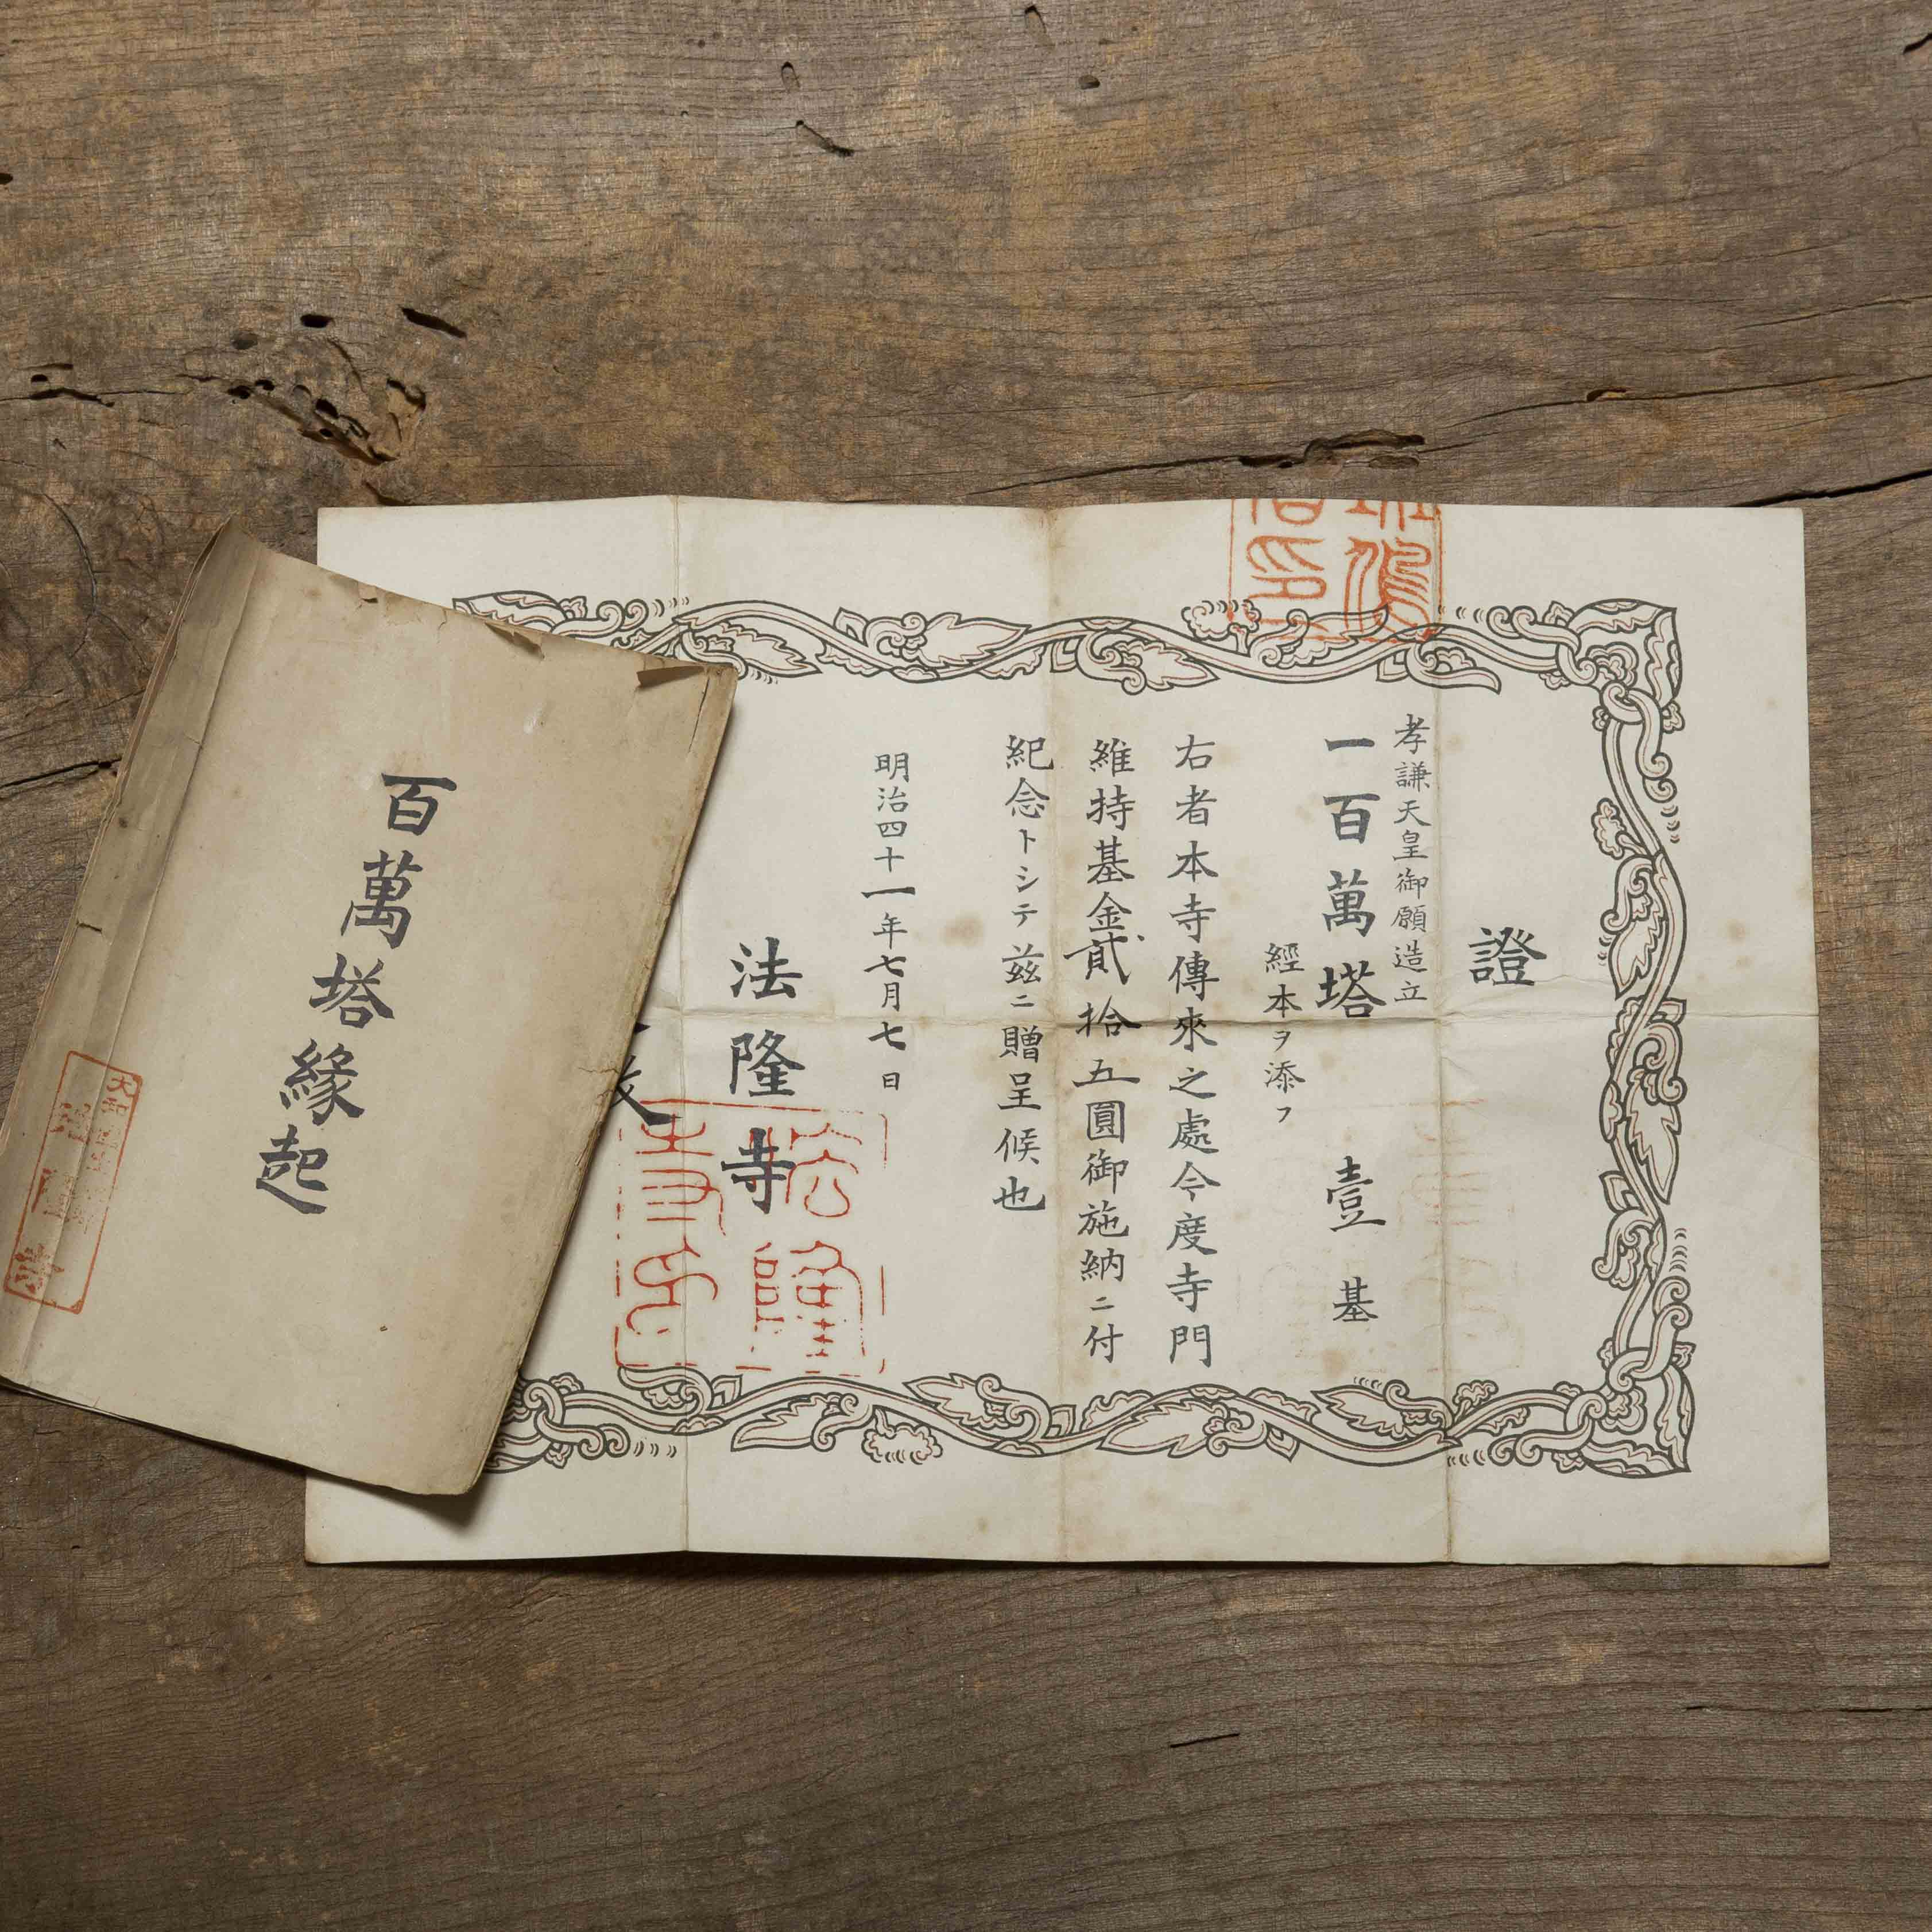 證
孝謙天皇御願造立
一百萬塔 壹基
經本ヲ添フ
右者本寺傳來之處今度寺門
維持基金貳拾五圓御施納ニ付
紀念トシテ茲ニ贈呈候也
明治四十一年七月七日
法隆寺
法隆寺印
百萬塔緣起
大和
法隆寺